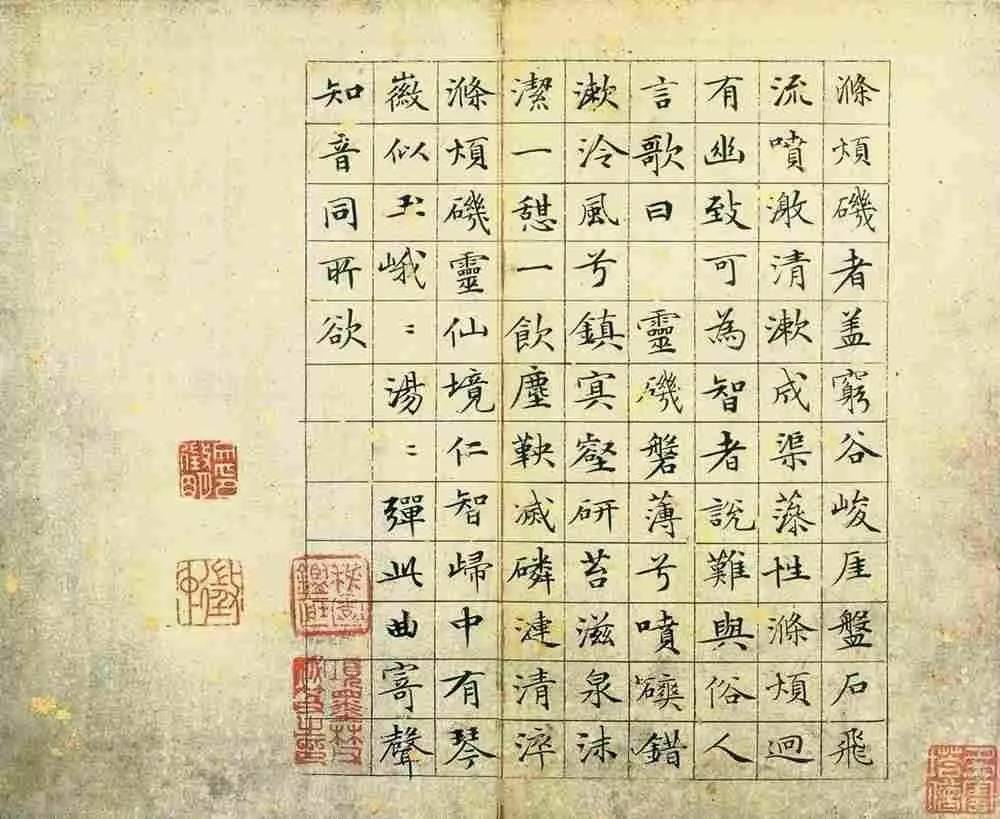 滌煩磯者盖窮谷峻厓盤石飛
流噴激清漱成渠藻性滌煩迥
有幽致可為智者說難與俗人
言歌曰　靈磯磐薄兮噴錯
漱泠風兮鎮冥壑研苔滋泉沫
潔一憩一飲塵鞅滅磷漣清淬
滌煩磯靈仙境仁智歸中有琴
徽似玉峨：湯：彈此曲寄聲
知音同所欲
項墨林父
秘笈之印